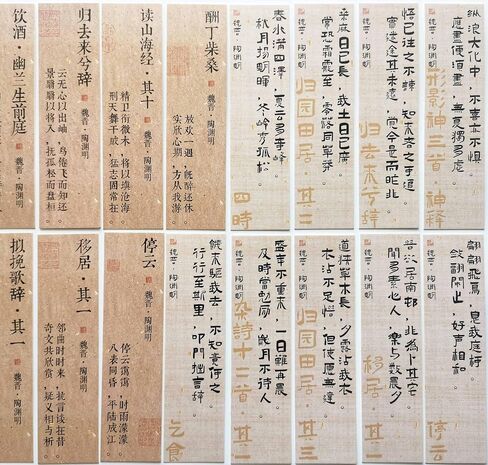 饮酒·幽兰生前庭
归去来兮辞
魏晋·陶渊明
云无心以出岫，鸟倦飞而知还。
景翳翳以将入，抚孤松而盘桓。
读山海经·其十
魏晋·陶渊明
精卫衔微木，将以填沧海。
刑天舞干戚，猛志固常在。
酬丁柴桑
魏晋·陶渊明
放欢一遇，既醉还休。
实欣心期，方从我游。
魏晋·陶渊明
春水满四泽，夏云多奇峰。
秋月扬明晖，冬岭秀孤松。
四时
魏晋·陶渊明
桑麻日已长，我土日已广。
常恐霜霰至，零落同草莽。
归园田居 其二
魏晋·陶渊明
悟已往之不谏，知来者之可追。
实迷途其未远，觉今是而昨非。
归去来兮辞
魏晋·陶渊明
纵浪大化中，不喜亦不惧。
应尽便须尽，无复独多虑。
形影神三首·神释
拟挽歌辞·其一
魏晋·陶渊明
移居·其一
魏晋·陶渊明
邻曲时时来，抗言谈在昔。
奇文共欣赏，疑义相与析。
停云
魏晋·陶渊明
停云霭霭，时雨濛濛。
八表同昏，平陆成江。
魏晋·陶渊明
饥来驱我去，不知竟何之。
行行至斯里，叩门拙言辞。
乞食
魏晋·陶渊明
盛年不重来，一日难再晨。
及时当勉励，岁月不待人。
杂诗十二首·其一
魏晋·陶渊明
道狭草木长，夕露沾我衣。
衣沾不足惜，但使愿无违。
归园田居 其三
魏晋·陶渊明
昔欲居南村，非为卜其宅。
闻多素心人，乐与数晨夕。
移居 其一
魏晋·陶渊明
翩翩飞鸟，息我庭柯。
敛翮闲止，好声相和。
停云